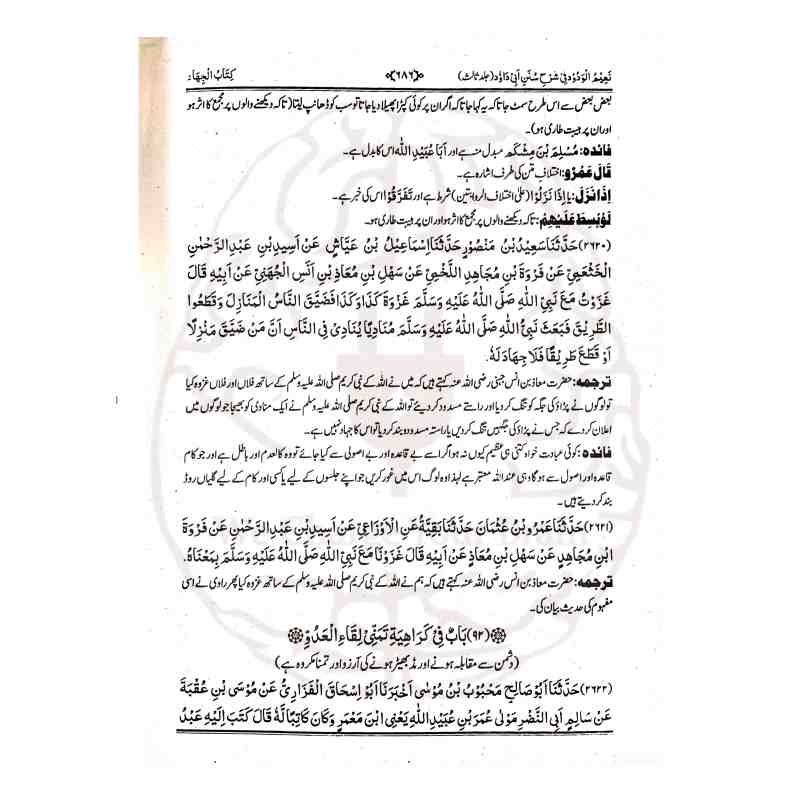 نَعِيْمُ الْوَدُوْد فِيْ شَرْحِ سُنَنِ اَبِيْ دَاوٗد (جلد ثالث) ﴿۶۸۶﴾ كِتَابُ الْجِهَاد
بعض بعض سے اس طرح سمٹ جاتا کہ یہ کہا جاتا کہ اگر ان پر کوئی کپڑا پھیلا دیا جاتا تو سب کو ڈھانپ لیتا (تاکہ دیکھنے والوں پر مجمع کا اثر ہو
اور ان پر ہیبت طاری ہو)۔
فائدہ: مُسْلِم بْنِ مِشْكَم مبدل منہ ہے اور اَبَا عُبَيْدِ اللّٰه اس کا بدل ہے۔
قَالَ عَمْرٌو: اختلافِ متن کی طرف اشارہ ہے۔
اِذَا نَزَلَ: یا اِذَا نَزَلُوْا (علیٰ اختلاف الروایتین) شرط ہے اور تَفَرَّقُوْا اس کی خبر ہے۔
لَوْ بُسِطَ عَلَيْهِمْ: تاکہ دیکھنے والوں پر مجمع کا اثر ہو اور ان پر ہیبت طاری ہو۔
(۲۶۲۰) حَدَّثَنَا سَعِيْدُ بْنُ مَنْصُوْرٍ حَدَّثَنَا اِسْمَاعِيْلُ بْنُ عَيَّاشٍ عَنْ اَسِيْدِ بْنِ عَبْدِ الرَّحْمٰنِ
الْخَثْعَمِيِّ عَنْ فَرْوَةَ بْنِ مُجَاهِدٍ اللَّخْمِيِّ عَنْ سَهْلِ بْنِ مُعَاذِ بْنِ اَنَسٍ الْجُهَنِيِّ عَنْ اَبِيْهِ قَالَ
غَزَوْتُ مَعَ نَبِيِّ اللّٰهِ صَلَّى اللّٰهُ عَلَيْهِ وَسَلَّمَ غَزْوَةَ كَذَا وَكَذَا فَضَيَّقَ النَّاسُ الْمَنَازِلَ وَقَطَعُوا
الطَّرِيْقَ فَبَعَثَ نَبِيُّ اللّٰهِ صَلَّى اللّٰهُ عَلَيْهِ وَسَلَّمَ مُنَادِيًا يُنَادِيْ فِي النَّاسِ اَنَّ مَنْ ضَيَّقَ مَنْزِلًا
اَوْ قَطَعَ طَرِيْقًا فَلَا جِهَادَ لَهٗ۔
ترجمہ: حضرت معاذ بن انس جہنی رضی اللہ عنہ کہتے ہیں کہ میں نے اللہ کے نبی کریم صلی اللہ علیہ وسلم کے ساتھ فلاں اور فلاں غزوہ کیا
تو لوگوں نے پڑاؤ کی جگہ کو تنگ کر دیا اور راستے مسدود کر دیئے تو اللہ کے نبی کریم صلی اللہ علیہ وسلم نے ایک منادی کو بھیجا جو لوگوں میں
اعلان کر دے کہ جس نے پڑاؤ کی جگہیں تنگ کر دیں یا راستہ مسدود و بند کر دیا تو اس کا جہاد نہیں ہے۔
فائدہ: کوئی عبادت خواہ کتنی ہی عظیم کیوں نہ ہو اگر اسے بے قاعدہ اور بے اصولی سے کیا جائے تو وہ کالعدم اور باطل ہے اور جو کام
قاعدہ اور اصول سے ہوگا وہی عند اللہ معتبر ہے لہذا وہ لوگ اس میں غور کریں جو اپنے جلسوں کے لیے یا کسی اور کام کے لیے گلیاں روڈ
بند کر دیتے ہیں۔
(۲۶۲۱) حَدَّثَنَا عَمْرُو بْنُ عُثْمَانَ حَدَّثَنَا بَقِيَّةُ عَنِ الْاَوْزَاعِيِّ عَنْ اَسِيْدِ بْنِ عَبْدِ الرَّحْمٰنِ عَنْ فَرْوَةَ
ابْنِ مُجَاهِدٍ عَنْ سَهْلِ بْنِ مُعَاذٍ عَنْ اَبِيْهِ قَالَ غَزَوْنَا مَعَ نَبِيِّ اللّٰهِ صَلَّى اللّٰهُ عَلَيْهِ وَسَلَّمَ بِمَعْنَاهُ۔
ترجمہ: حضرت معاذ بن انس رضی اللہ عنہ کہتے ہیں کہ ہم نے اللہ کے نبی کریم صلی اللہ علیہ وسلم کے ساتھ غزوہ کیا پھر راوی نے اسی
مفہوم کی حدیث بیان کی۔
(۹۲) بَابٌ فِيْ كَرَاهِيَةِ تَمَنِّيْ لِقَاءِ الْعَدُوِّ
(دشمن سے مقابلہ ہونے اور مڈ بھیڑ ہونے کی آرزو اور تمنا مکروہ ہے)
(۲۶۲۲) حَدَّثَنَا اَبُوْ صَالِحٍ مَحْبُوْبُ بْنُ مُوْسٰى اَخْبَرَنَا اَبُوْ اِسْحَاقَ الْفَزَارِيُّ عَنْ مُوْسَى بْنِ عُقْبَةَ
عَنْ سَالِمٍ اَبِي النَّضْرِ مَوْلٰى عُمَرَ بْنِ عُبَيْدِ اللّٰهِ يَعْنِي ابْنَ مَعْمَرٍ وَكَانَ كَاتِبًا لَهٗ قَالَ كَتَبَ اِلَيْهِ عَبْدُ